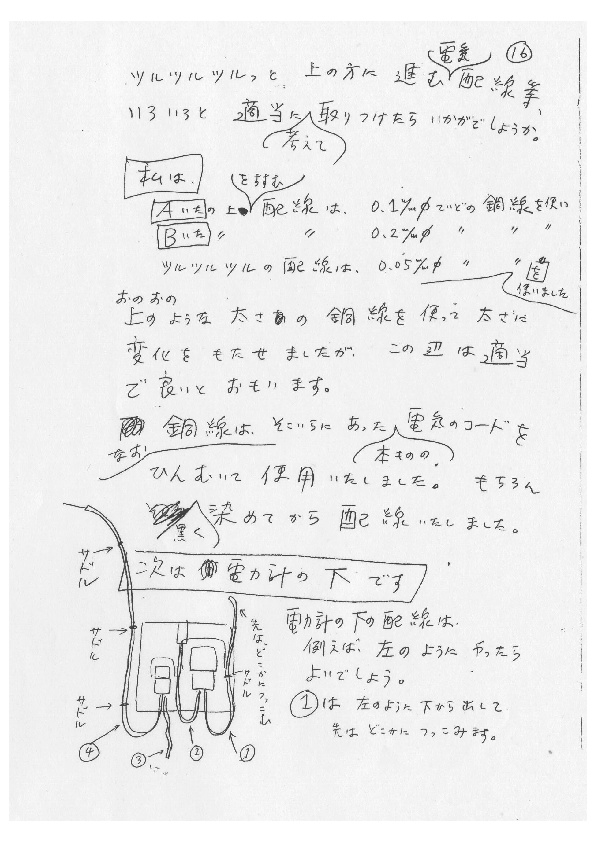 ⑯
ツルツルツルっと 上の方に 進む 電気 配線等、
いろいろと 適当に 考えて 取りつけたら いかがでしょうか。
私は、
Aいたの上 をすすむ 配線は、 0.1㎜φ ていどの 銅線を使い
Bいた〃 〃 0.2㎜φ 〃 〃 〃
ツルツルツルの 配線は、 0.05㎜φ 〃 〃 を 使いました
おのおの
上のような 太さの 銅線を 使って 太さに
変化を もたせ ましたが、 この 辺は 適当
で 良いと おもいます。
なお 銅線は、そこいらにあった 本ものの 電気のコードを
ひんむいて 使用いたしました。 もちろん
黒く 染めてから 配線いたしました。
次は 電力計の 下 です
電力計の下の配線は、
例えば、左のように やったら
よいでしょう。
①は 左のように 下から出して
先は どこかに つっこみます。
サドル
サドル
サドル
サドル
先は、どこかにつっこむ
④
③
②
①